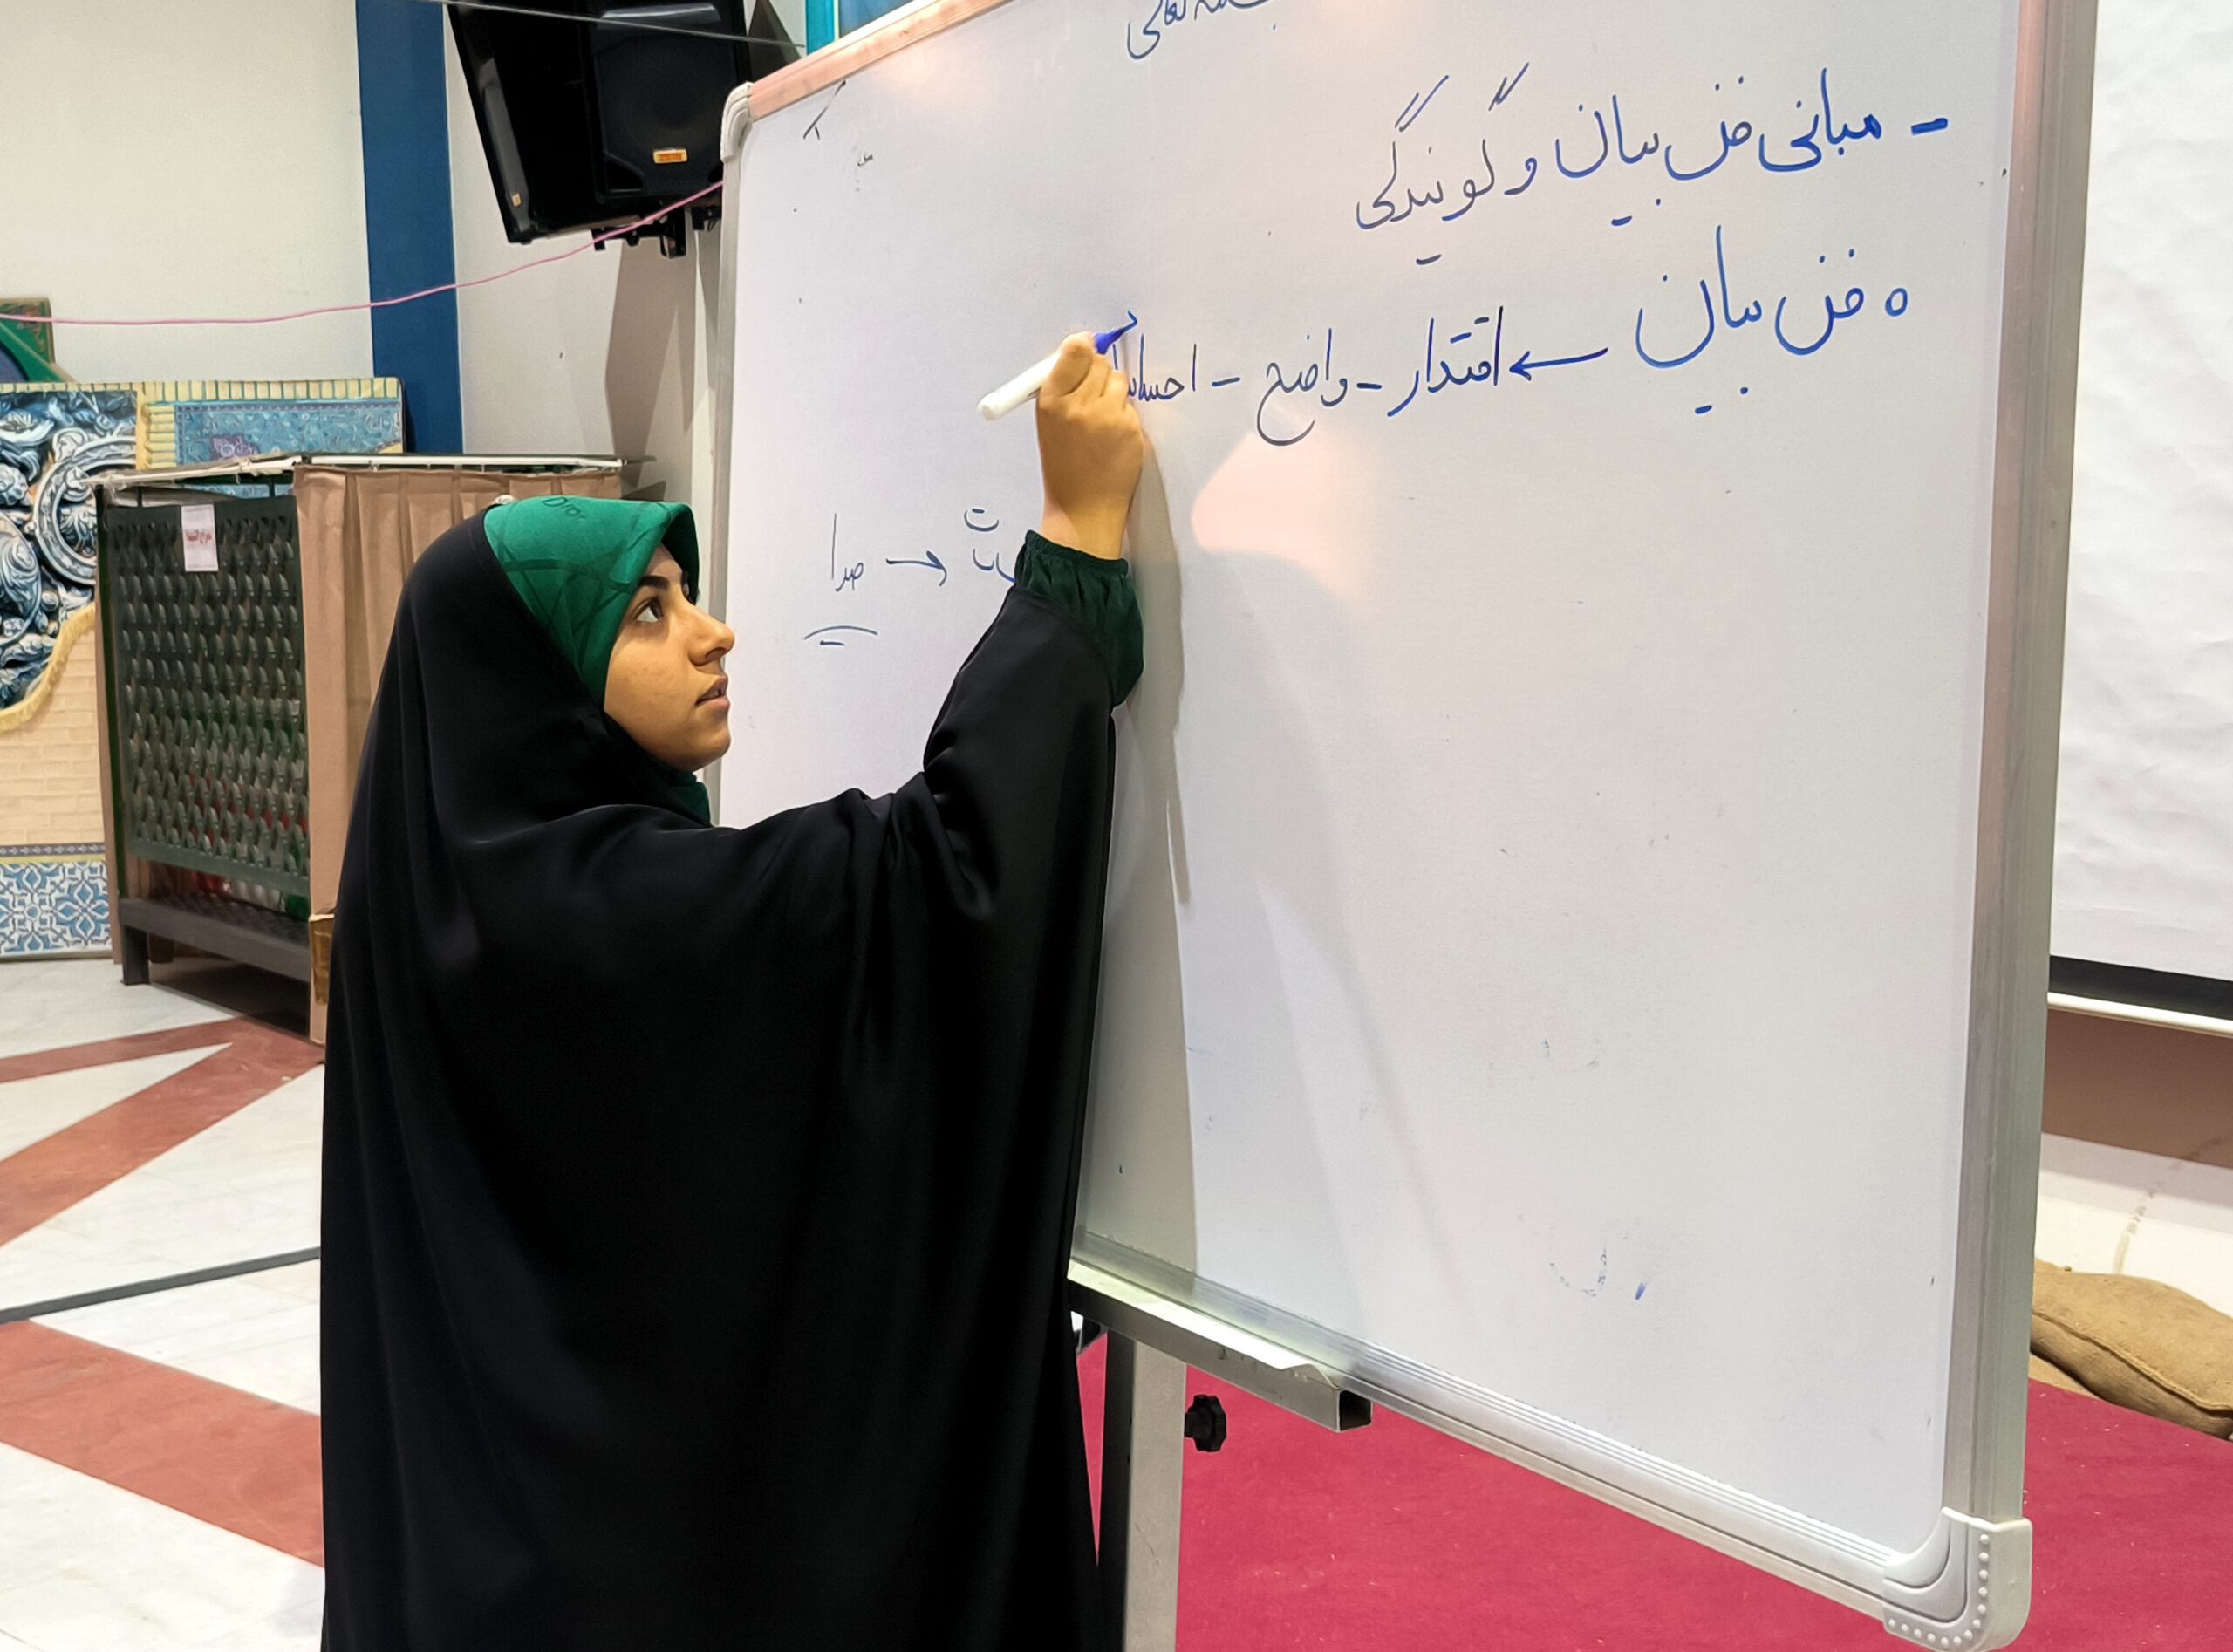 تعالی
- مبانی فن بیان و گویندگی
o فن بیان ← اقتدار - واضح - احسا
صدا →
Dior